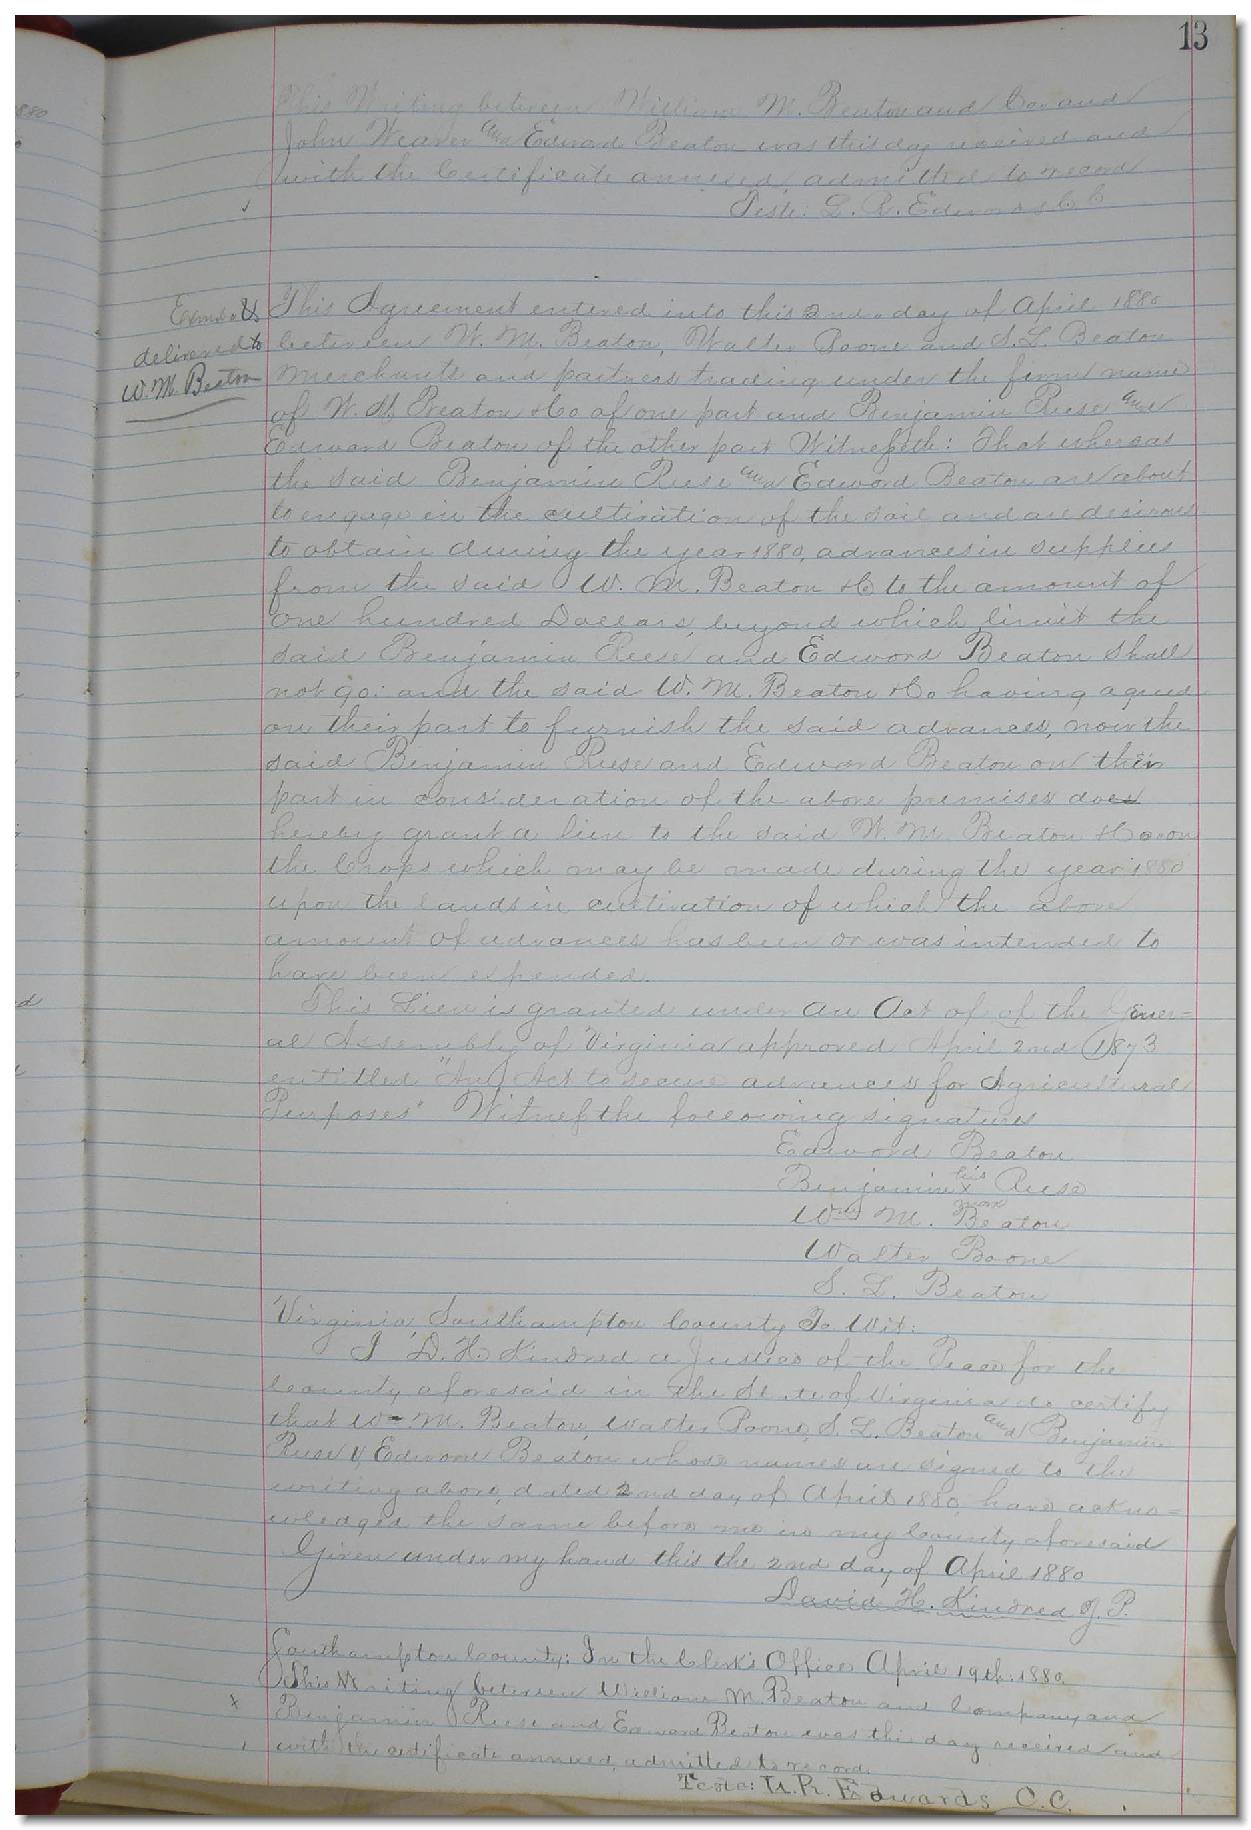 13
This Writing between William M. Beaton and Co. and
John Weaver and Edward Beaton was this day received and
with the Certificate annexed, admitted to record
Teste: L. R. Edwards C C
Exmd &
delivered to
W. M. Beaton
This Agreement entered into this 2nd day of April 1880
between W. M. Beaton, Walter Boone and S. L. Beaton
merchants and partners trading under the firm name
of W. M Beaton & Co of one part and Benjamin Reese and
Edward Beaton of the other part Witnesseth: That whereas
the said Benjamin Reese and Edward Beaton are about
to engage in the cultivation of the soil and are desirous
to obtain during the year 1880, advances in supplies
from the said W. M. Beaton & Co to the amount of
one hundred Dollars, beyond which limit the
said Benjamin Reese and Edward Beaton shall
not go: and the said W. M. Beaton & Co having agreed
on their part to furnish the said advances, now the
said Benjamin Reese and Edward Beaton on their
part in consideration of the above premises does
hereby grant a lien to the said W. M. Beaton & Co on
the Crops which may be made during the year 1880
upon the lands in cultivation of which the above
amount of advances has been or was intended to
have been expended.
This Lien is granted under an Act of of the Gener=
al Assembly of Virginia approved April 2nd 1873
entitled "An Act to secure advances for Agricultural
Purposes" Witness the following signatures
Edward Beaton
Benjamin his x mark Reese
Wm M. Beaton
Walter Boone
S. L. Beaton
Virginia, Southampton County To Wit:
I D. H. Kindred a Justice of the Peace for the
County aforesaid in the State of Virginia do certify
that Wm M. Beaton, Walter Boone, S. L. Beaton and Benjamin
Reese & Edward Beaton whose names are signed to the
writing above, dated 2nd day of April 1880, have ackno=
wledged the same before me in my County aforesaid
Given under my hand this the 2nd day of April 1880
David H. Kindred J. P.
Southampton County: In the Clerk's Office April 19th 1880
This Writing between William M. Beaton and Company and
x Benjamin Reese and Edward Beaton was this day received and
with the certificate annexed, admitted to record.
Teste: L. R. Edwards C.C.